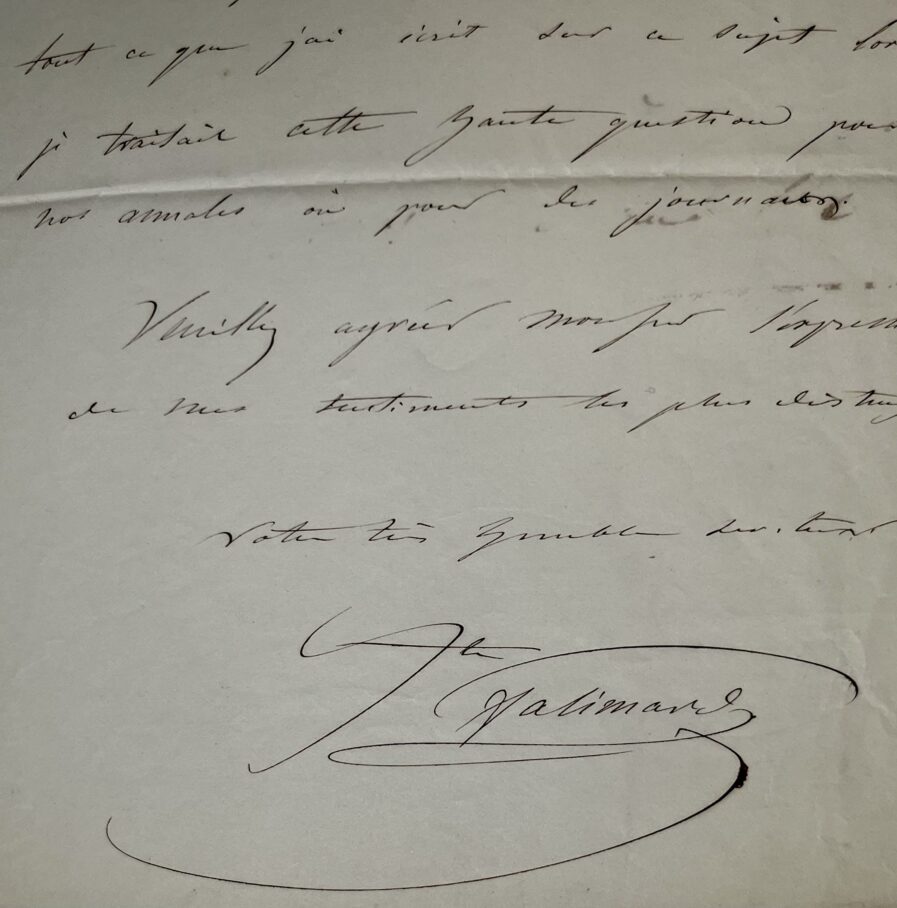 tout ce que j'ai écrit sur ce sujet lor
je traitais cette haute question pour
nos annales ou pour des journaux.
Veuillez agréer monsieur l'express
de mes sentiments les plus disting
Votre très humble serviteur
Galimard